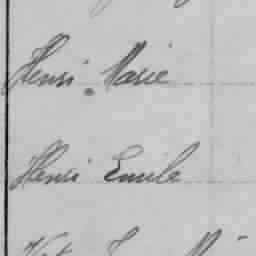 Henri Marie
Henri Emile